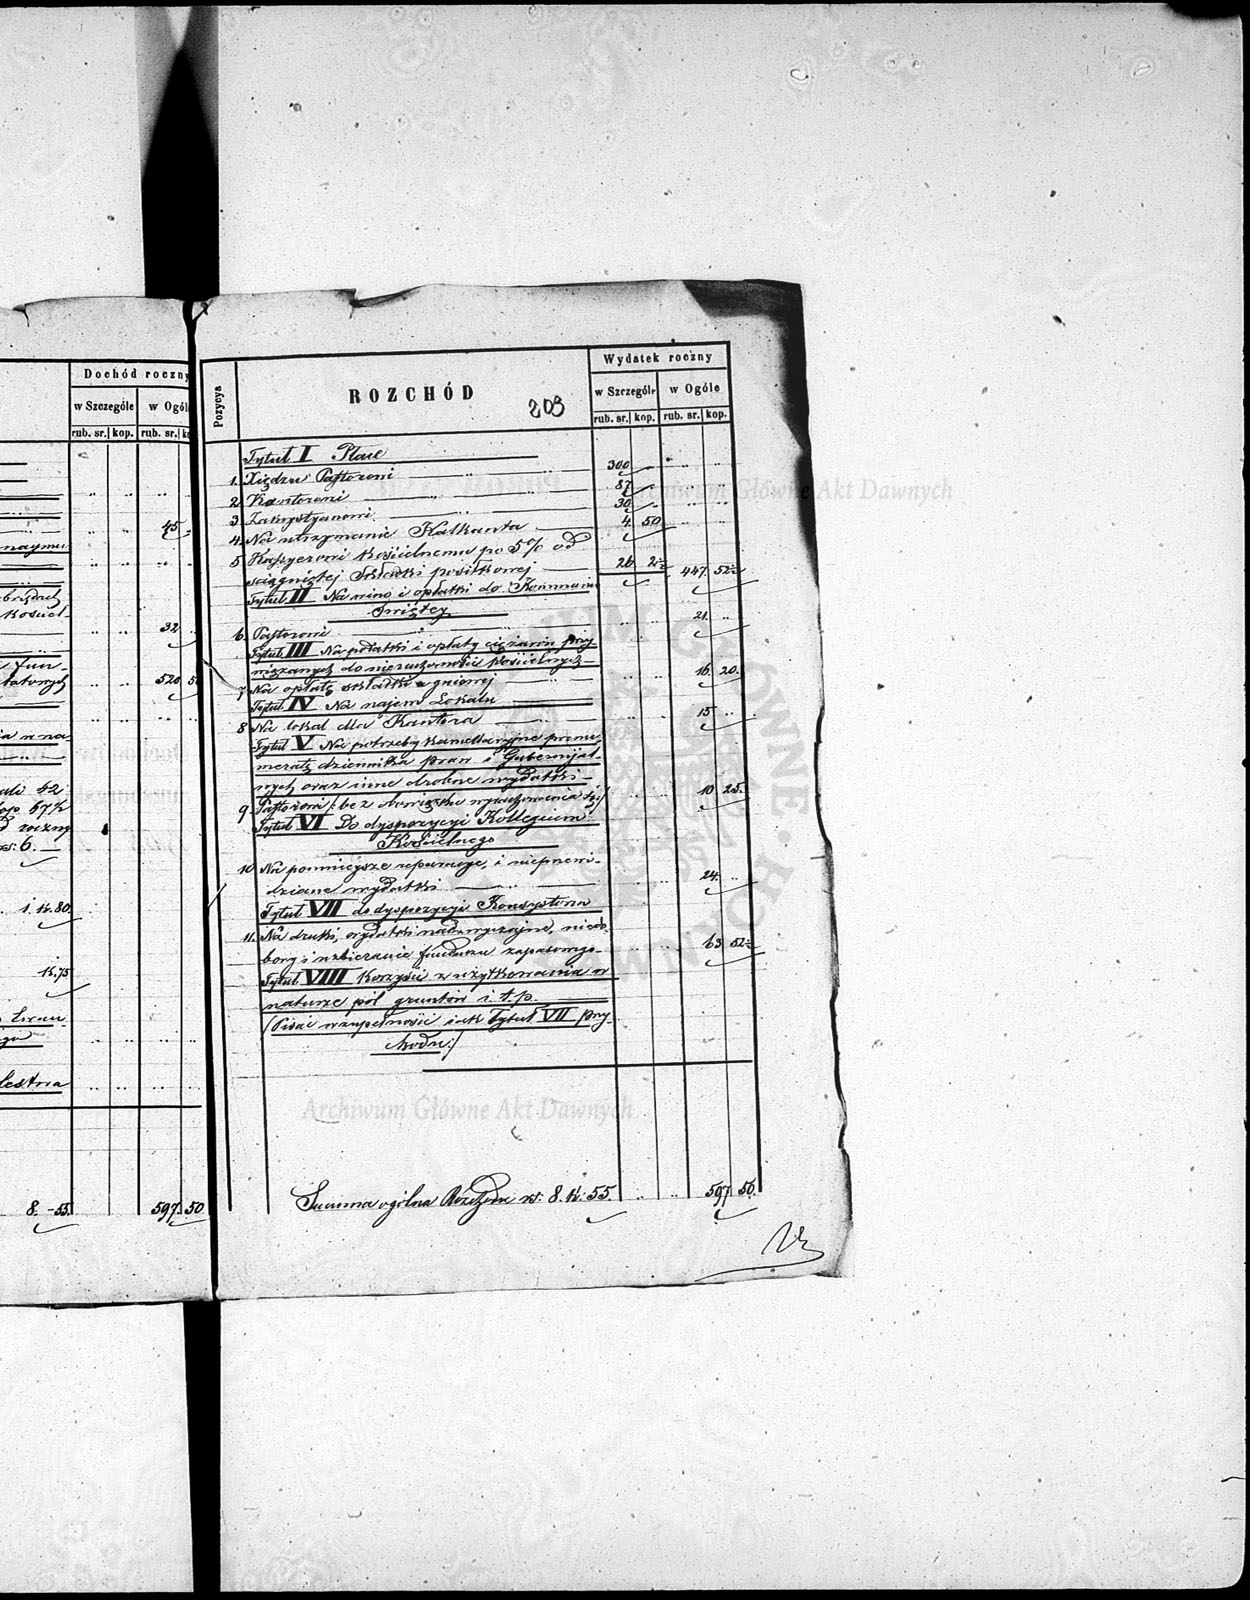 Dochód roczny
w Szczególe w Ogól
rub. sr. kop. rub. sr. ko
45
32
520 5
42
67½
roczny
6.
1. k. 80.
k. 75
8. - 55. 597. 50
Pozycya
ROZCHÓD
203
Wydatek roczny
w Szczególe w Ogóle
rub. sr. kop. rub. sr. kop.
Tytuł I Płace
1. Xiędzu Pastorowi 300
2. Kantorowi 87
3. Zakrystyanowi 30
4. Na utrzymanie Kalkanta 4. 50
5 Kassyerowi kościelnemu po 5% od
ściągniętej składki posiłkowej 26 2½ 447. 52½
Tytuł II Na wino i opłatki do Kommunii
Świętej
6. Pastorowi 21.
Tytuł III Na podatki i opłaty ciężarów przy-
wiązanych do nieruchomości kościelnych
7. Na opłatę składki ogniowej 16. 20.
Tytuł IV Na najem Lokalu
8 Na lokal dla Kantora 15
Tytuł V Na potrzeby kancellaryjne prenu-
meratę dziennika praw i Gubernijal-
nych oraz inne drobne wydatki
9. Pastorowi /: bez obowiązku 10 25.
Tytuł VI Do dyspozycyi Kollegium
Kościelnego
10 Na pomniejsze reparacye, i nieprzewi-
dziane wydatki 24.
Tytuł VII do dyspozycyi Konsystorza
11. Na druki, wydatki nadzwyczajne, niedo-
bory i uzbieranie funduszu zapasowego 63 52½
Tytuł VIII Korzyści z użytkowania w
naturze pól gruntów i. t. p.
(Pisać w zupełności jak Tytuł VII Przy-
chodu:)
Summa ogólna Rozchodu rs: 8. k: 55. 597 50.
Archiwum Główne Akt Dawnych
Archiwum Główne Akt Dawnych